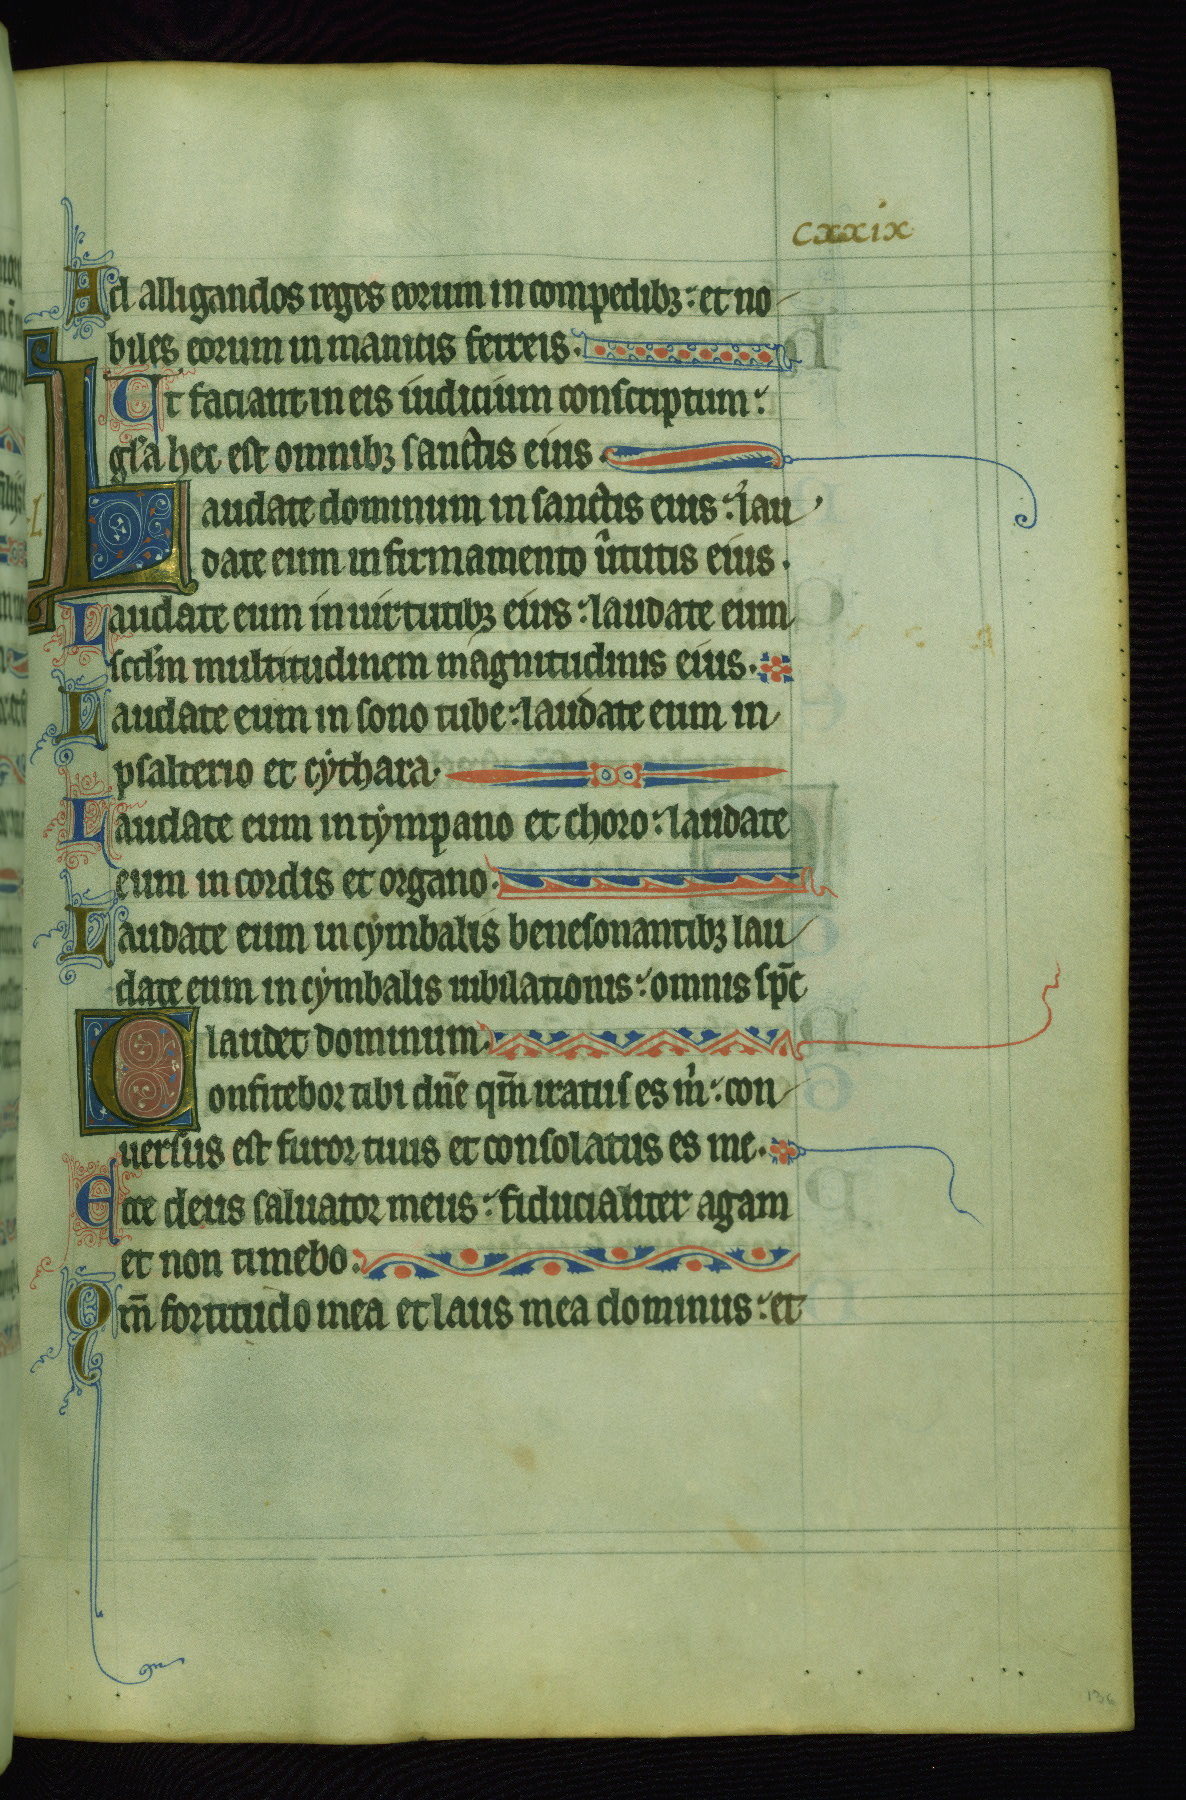 cxxix
Ad alligandos reges eorum in compedibꝫ: et no
biles eorum in manicis ferreis.
Ut faciant in eis iudicium conscriptum:
gl̃a hec est omnibꝫ sanctis eius.
Laudate dominum in sanctis eius: lau
date eum in firmamento ũtutis eius.
Laudate eum in uirtutibꝫ eius: laudate eum
scd̃m multitudinem magnitudinis eius.
Laudate eum in sono tube: laudate eum in
psalterio et cythara.
Laudate eum in tympano et choro: laudate
eum in cordis et organo.
Laudate eum in cymbalis benesonantibꝫ lau
date eum in cymbalis iubilationis: omnis sp̃c
laudet dominum.
Confitebor tibi dñe qm̃ iratus es m̍: con
uersus est furor tuus et consolatus es me.
Ecce deus saluator meus: fiducialiter agam
et non timebo.
Qm̃ fortitudo mea et laus mea dominus: et
136